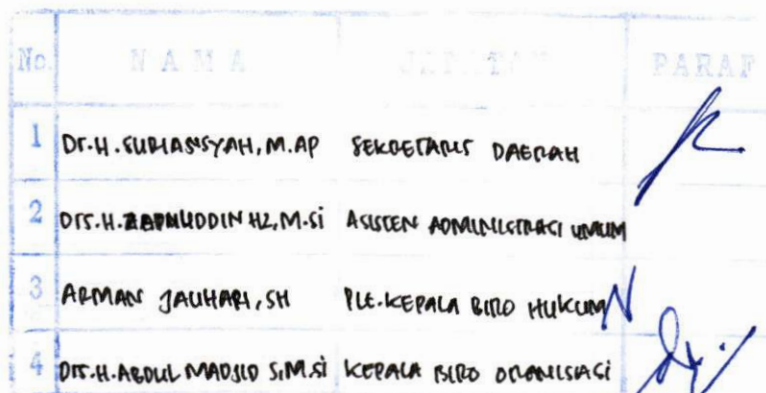 No. NAMA JABATAN PARAF
1 Dr.H.SURIANSYAH, M.AP SEKRETARIS DAERAH
2 Drs.H.ZAINUDDIN HZ, M.Si ASISTEN ADMINISTRASI UMUM
3 ARMAN JAUHARI, SH PLT. KEPALA BIRO HUKUM
4 Drs.H.ABDUL MADJID S, M.Si KEPALA BIRO ORGANISASI